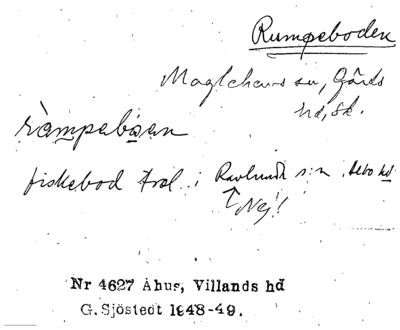 Rumpeboden
Maglehems sn, Gärds
hd, Sk.
rampabóan
fiskebod trol. i Ravlunda s:n, Albo hd
↑ Nej!
Nr 4627 Åhus, Villands hd
G. Sjöstedt 1948-49.